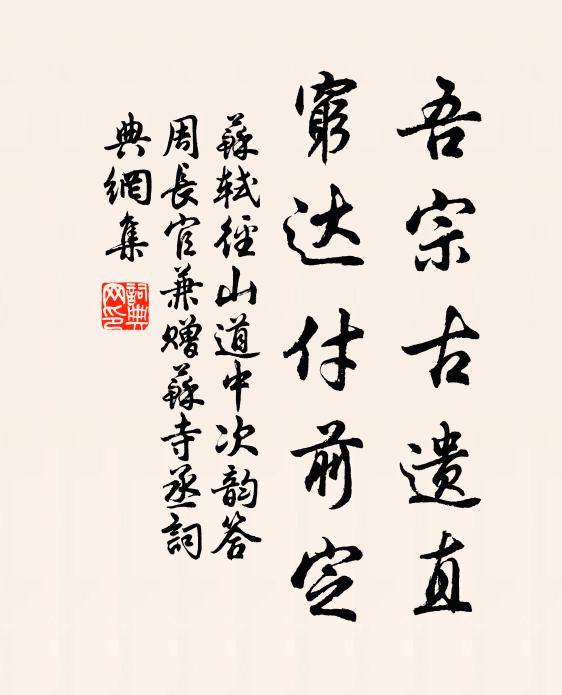 吾宗古遗直
窮达付前定
蘇軾徑山道中次韵答
周長官兼赠蘇寺丞詞
典網集
詞典网印